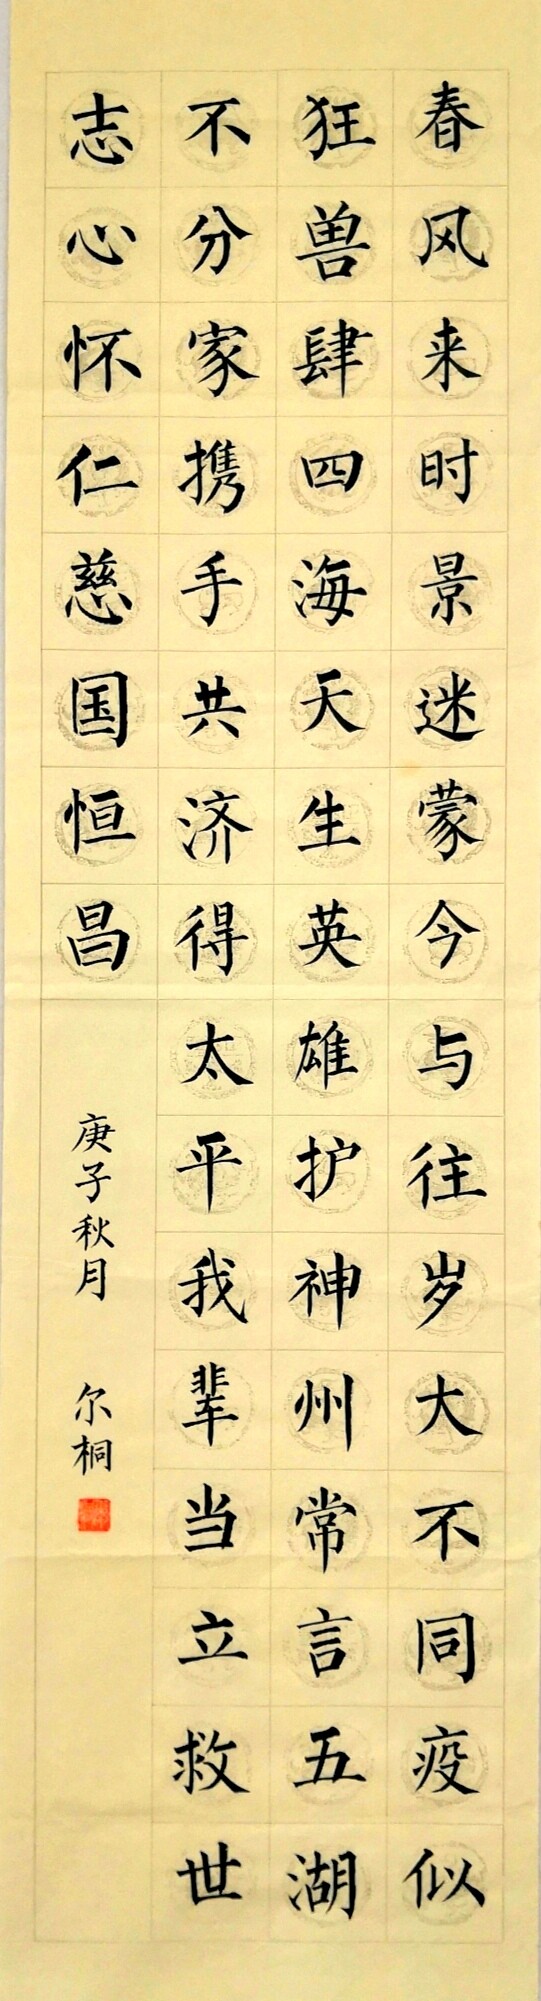 春风来时景迷蒙今与往岁大不同疫似
狂兽肆四海天生英雄护神州常言五湖
不分家携手共济得太平我辈当立救世
志心怀仁慈国恒昌
庚子秋月 尔桐